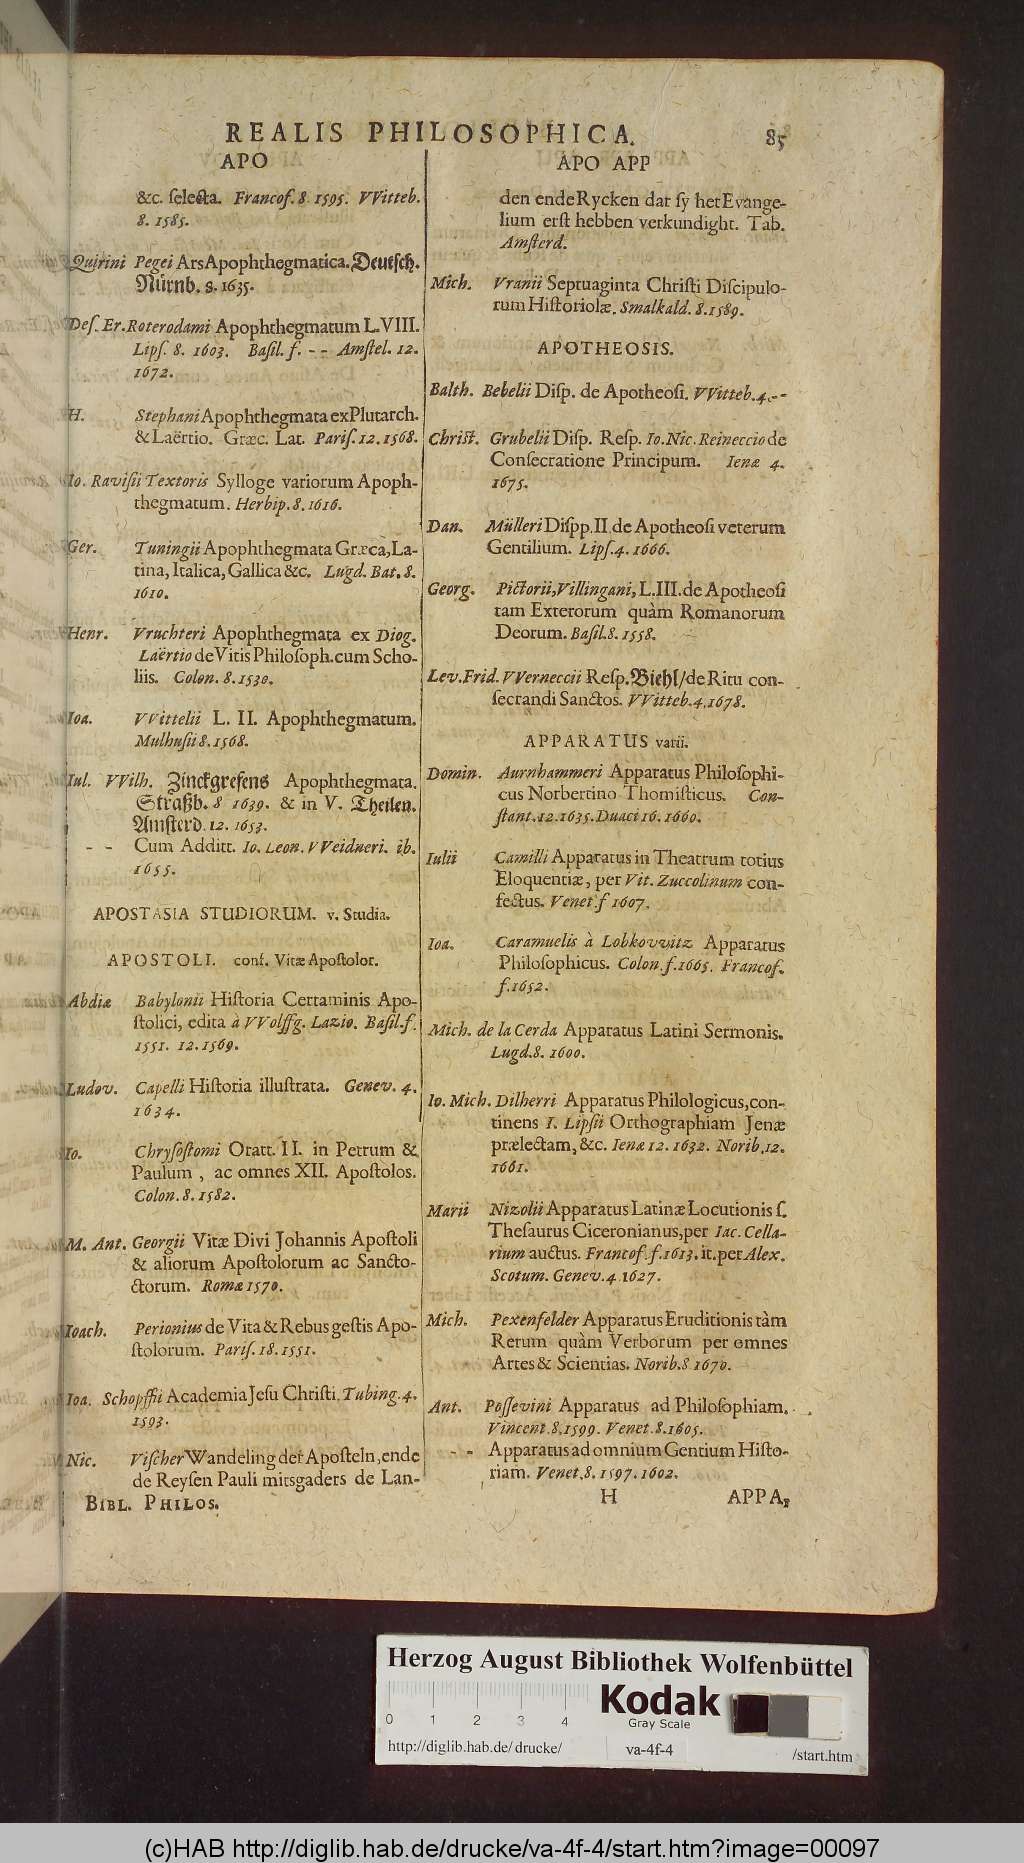 REALIS PHILOSOPHICA. 85
APO
&c. selecta. Francof. 8. 1595. VVitteb.
8. 1585.
Quirini Pegei Ars Apophthegmatica. Deutsch.
Nürnb. 8. 1635.
Des. Er. Roterodami Apophthegmatum L. VIII.
Lips. 8. 1603. Basil. f. -- Amstel. 12.
1672.
H. Stephani Apophthegmata ex Plutarch.
& Laërtio. Græc. Lat. Paris. 12. 1568.
Io. Ravisii Textoris Sylloge variorum Apoph-
thegmatum. Herbip. 8. 1616.
Ger. Tuningii Apophthegmata Græca, La-
tina, Italica, Gallica &c. Lugd. Bat. 8.
1610.
Henr. Vruchteri Apophthegmata ex Diog.
Laërtio de Vitis Philosoph. cum Scho-
liis. Colon. 8. 1530.
Ioa. VVittelii L. II. Apophthegmatum.
Mulhusii 8. 1568.
Iul. VVilh. Zinckgrefens Apophthegmata.
Straßb. 8 1639. & in V. Theilen.
Amsterd. 12. 1653.
- - Cum Additt. Io. Leon. VVeidneri. ib.
1655.
APOSTASIA STUDIORUM. v. Studia.
APOSTOLI. conf. Vitæ Apostolor.
Abdiæ Babylonii Historia Certaminis Apo-
stolici, edita à VVolffg. Lazio. Basil. f.
1551. 12. 1569.
Ludov. Capelli Historia illustrata. Genev. 4.
1634.
Io. Chrysostomi Oratt. II. in Petrum &
Paulum, ac omnes XII. Apostolos.
Colon. 8. 1582.
M. Ant. Georgii Vitæ Divi Johannis Apostoli
& aliorum Apostolorum ac Sancto-
ctorum. Romæ 1570.
Ioach. Perionius de Vita & Rebus gestis Apo-
stolorum. Paris. 18. 1551.
Ioa. Schopffii Academia Jesu Christi. Tubing. 4.
1593.
Nic. Vischer Wandeling der Aposteln, ende
de Reysen Pauli mitsgaders de Lan-
BIBL. PHILOS.
APO APP
den ende Rycken dar sy het Evange-
lium erst hebben verkundight. Tab.
Amsterd.
Mich. Vranii Septuaginta Christi Discipulo-
rum Historiolæ. Smalkald. 8. 1589.
APOTHEOSIS.
Balth. Bebelii Disp. de Apotheosi. VVitteb. 4. --
Christ. Grubelii Disp. Resp. Io. Nic. Reineccio de
Consecratione Principum. Ienæ 4.
1675.
Dan. Mülleri Dispp. II. de Apotheosi veterum
Gentilium. Lips. 4. 1666.
Georg. Pictorii, Villingani, L. III. de Apotheosi
tam Exterorum quàm Romanorum
Deorum. Basil. 8. 1558.
Lev. Frid. VVerneccii Resp. Biehl/ de Ritu con-
secrandi Sanctos. VVitteb. 4. 1678.
APPARATUS varii.
Domin. Aurnhammeri Apparatus Philosophi-
cus Norbertino Thomisticus. Con-
stant. 12. 1635. Duaci 16. 1660.
Iulii Camilli Apparatus in Theatrum totius
Eloquentiæ, per Vit. Zuccolinum con-
fectus. Venet. f 1607.
Ioa. Caramuelis à Lobkovvitz Apparatus
Philosophicus. Colon. f. 1665. Francof.
f. 1652.
Mich. de la Cerda Apparatus Latini Sermonis.
Lugd. 8. 1600.
Io. Mich. Dilherri Apparatus Philologicus, con-
tinens I. Lipsii Orthographiam Jenæ
prælectam, &c. Ienæ 12. 1632. Norib. 12.
1661.
Marii Nizolii Apparatus Latinæ Locutionis s.
Thesaurus Ciceronianus, per Iac. Cella-
rium auctus. Francof. f. 1613. it. per Alex.
Scotum. Genev. 4. 1627.
Mich. Pexenfelder Apparatus Eruditionis tàm
Rerum quàm Verborum per omnes
Artes & Scientias. Norib. 8 1670.
Ant. Possevini Apparatus ad Philosophiam.
Vincent. 8. 1599. Venet. 8. 1605.
- - Apparatus ad omnium Gentium Histo-
riam. Venet. 8. 1597. 1602.
H APPA,
Herzog August Bibliothek Wolfenbüttel
0 1 2 3 4
Kodak
Gray Scale
http://diglib.hab.de/drucke/ va-4f-4 /start.htm
(c)HAB http://diglib.hab.de/drucke/va-4f-4/start.htm?image=00097